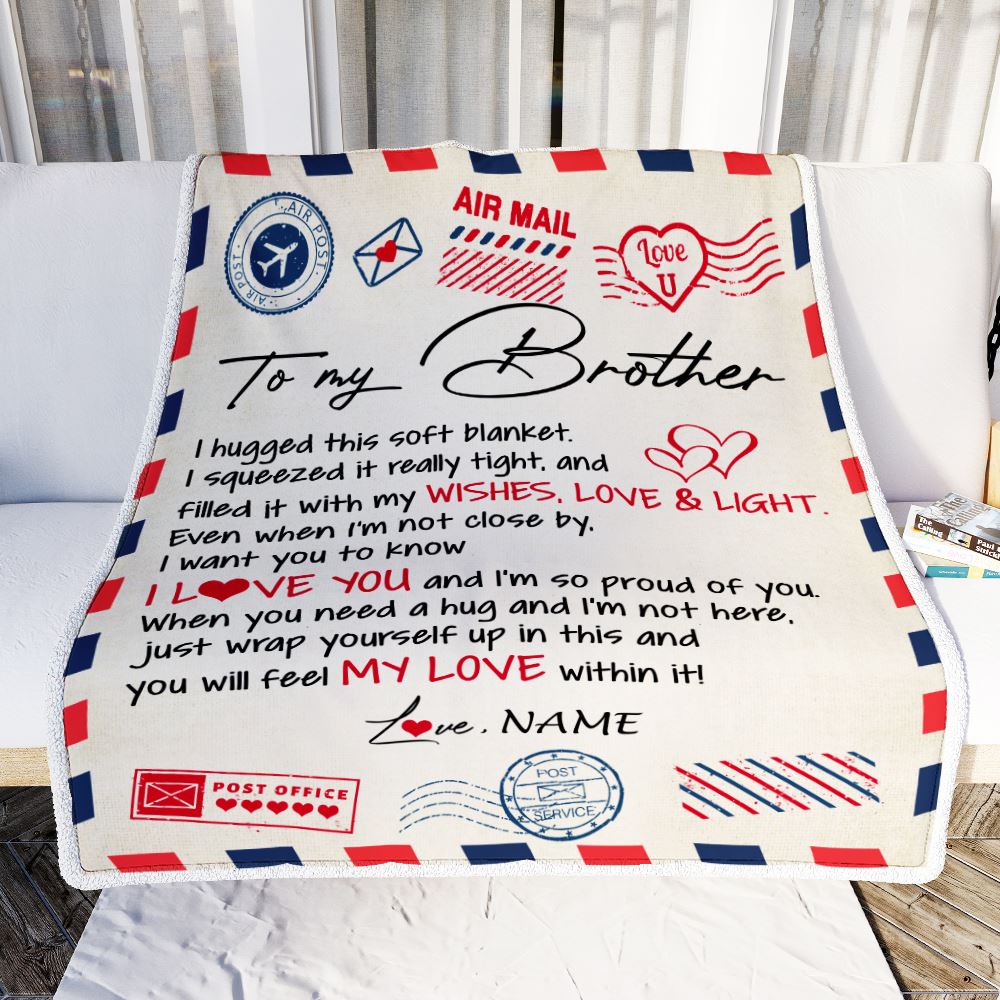 AIR POST
AIR POST
AIR MAIL
Love
U
To my Brother
I hugged this soft blanket.
I squeezed it really tight, and
filled it with my WISHES, LOVE & LIGHT.
Even when I'm not close by,
I want you to know
I L❤VE YOU and I'm so proud of you.
When you need a hug and I'm not here,
just wrap yourself up in this and
you will feel MY LOVE within it!
L❤ve, NAME
POST OFFICE
POST
SERVICE
The
Calling
Paul